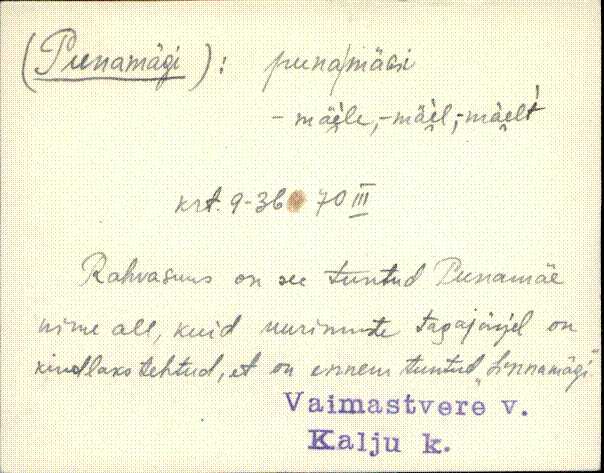 (Punamägi): puna/mäǵi
- mäe̯le, -mäe̯l, -mäe̯lt
krt. 9-36 70 III
Rahvasuus on see tuntud Punamäe
nime all, kuid uurimuste tagajärjel on
kindlaks tehtud, et on ennem tuntud „Linnamägi"
Vaimastvere v.
Kalju k.